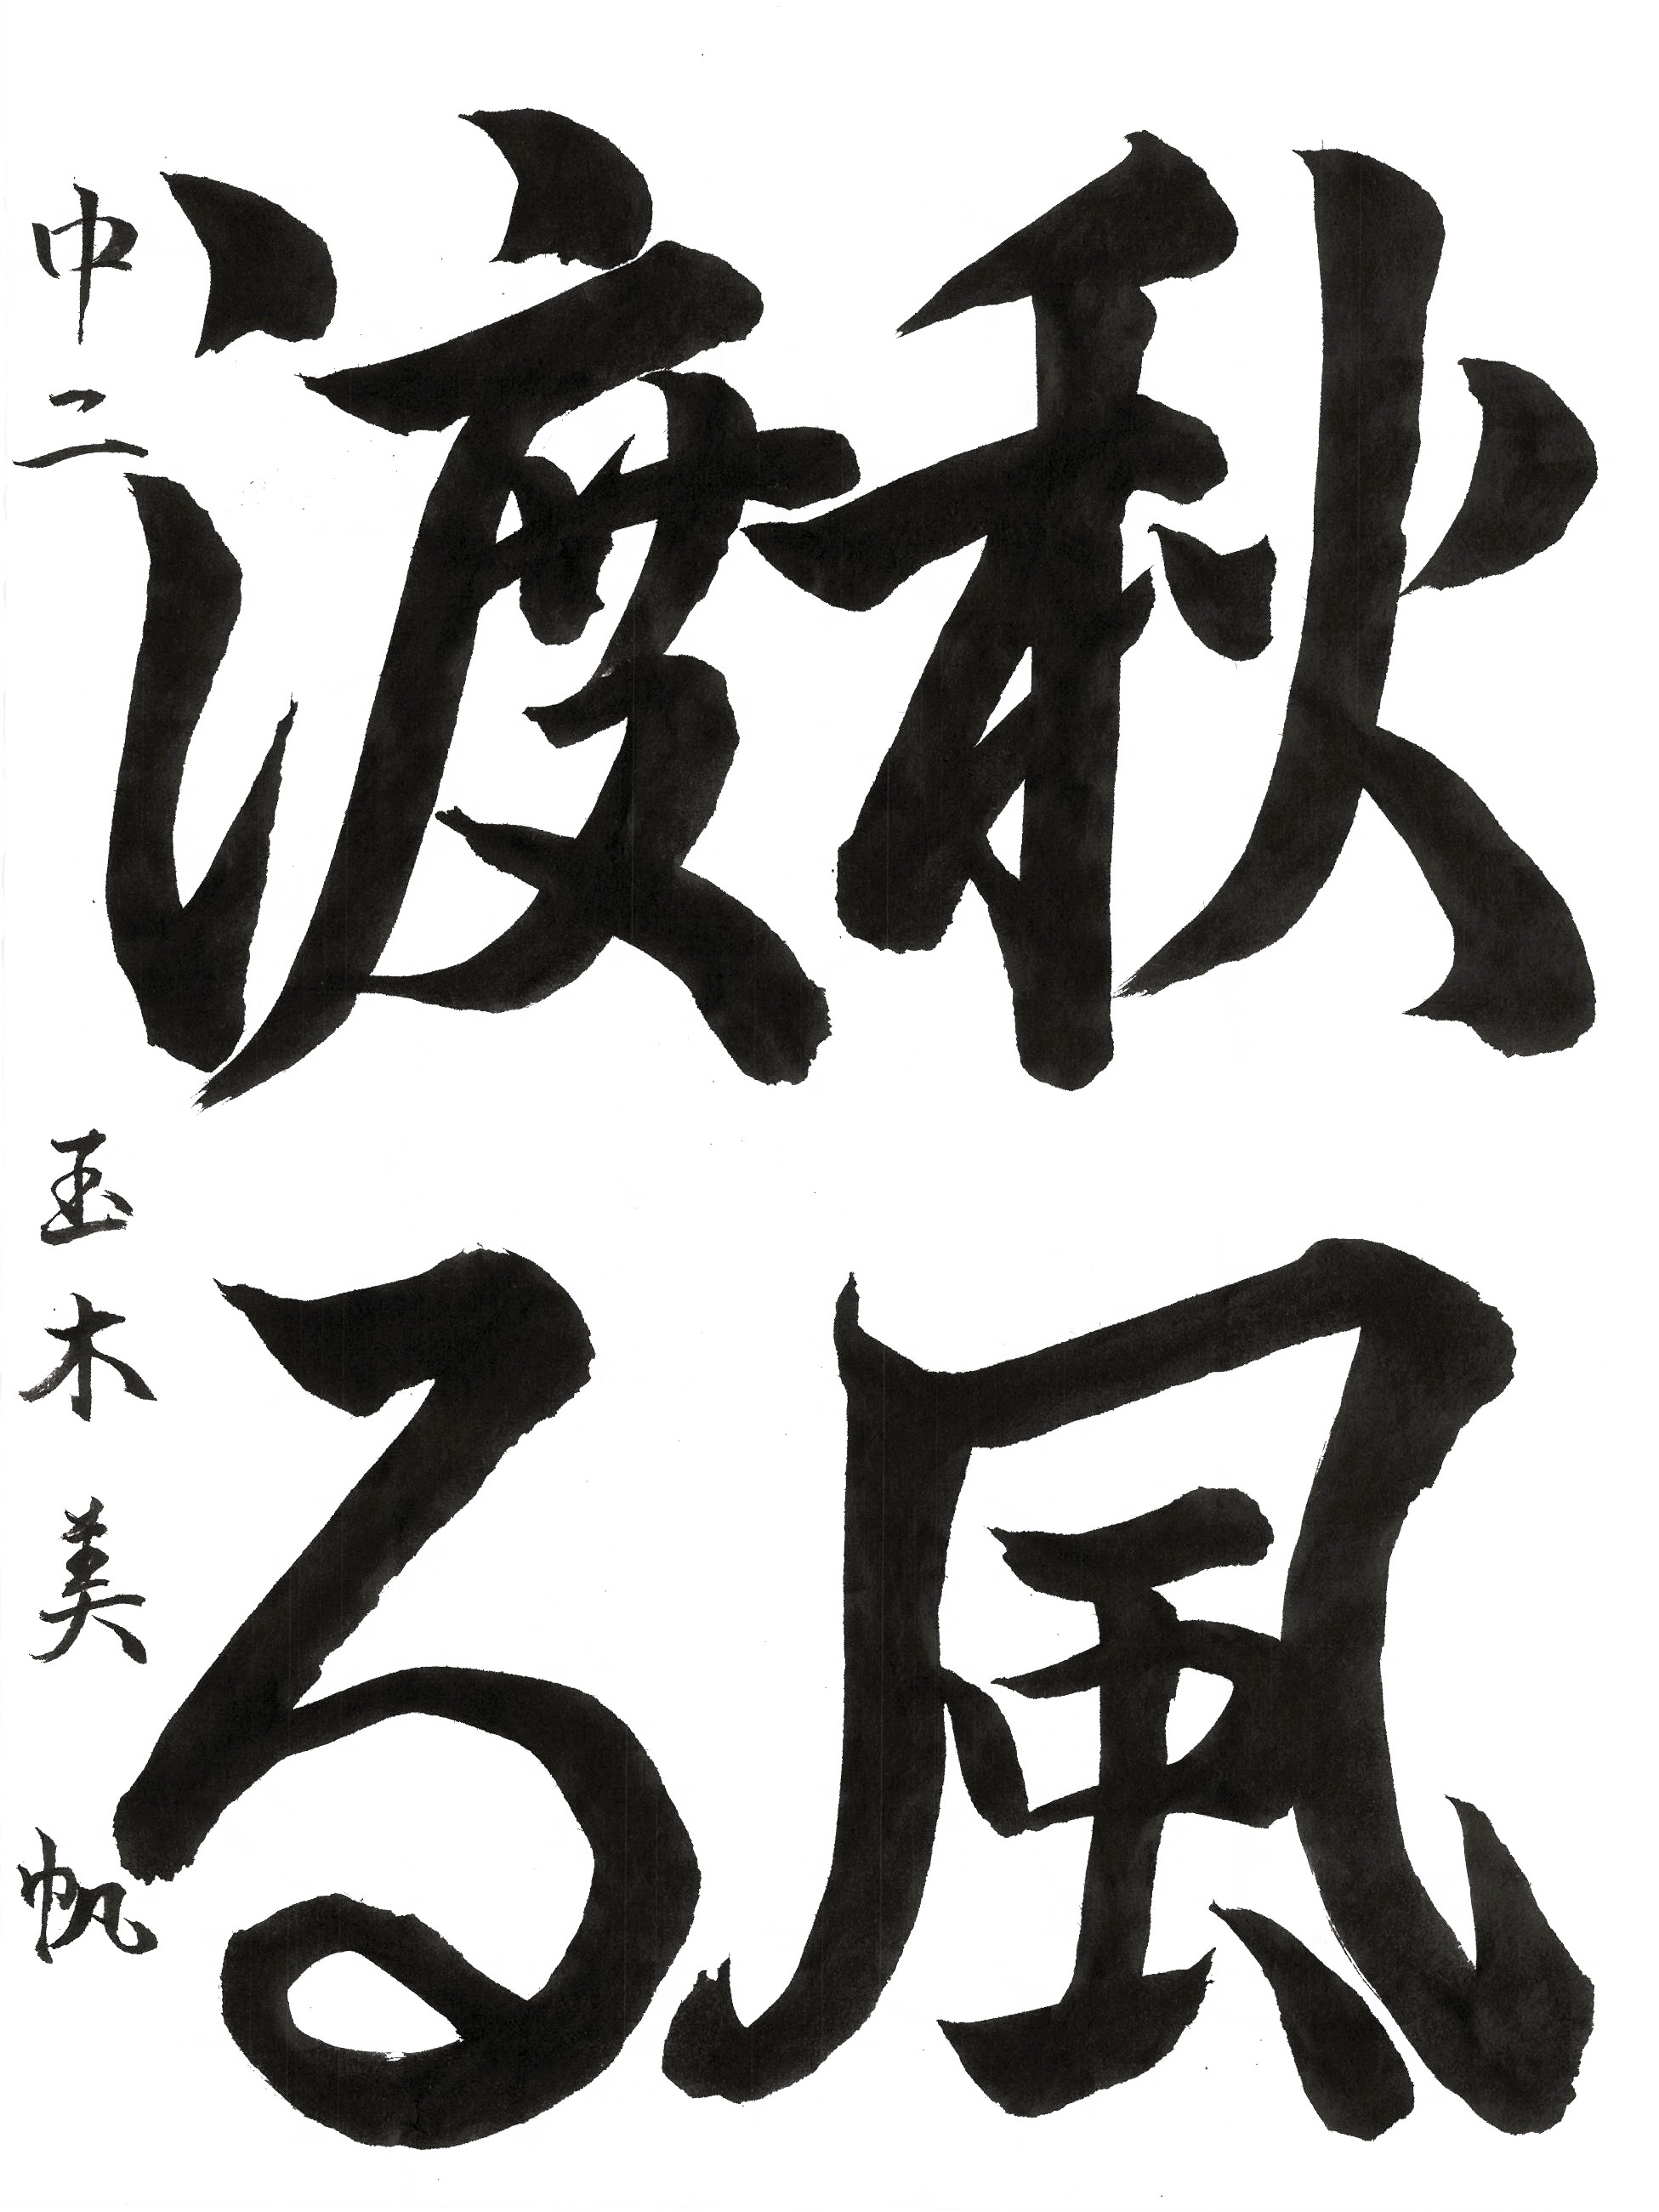 秋風
渡る
中二 玉木美帆